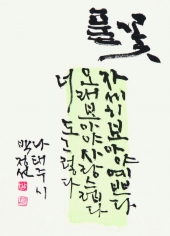 풀꽃
자세히 보아야 예쁘다
오래 보아야 사랑스럽다
너도 그렇다
나태주 시